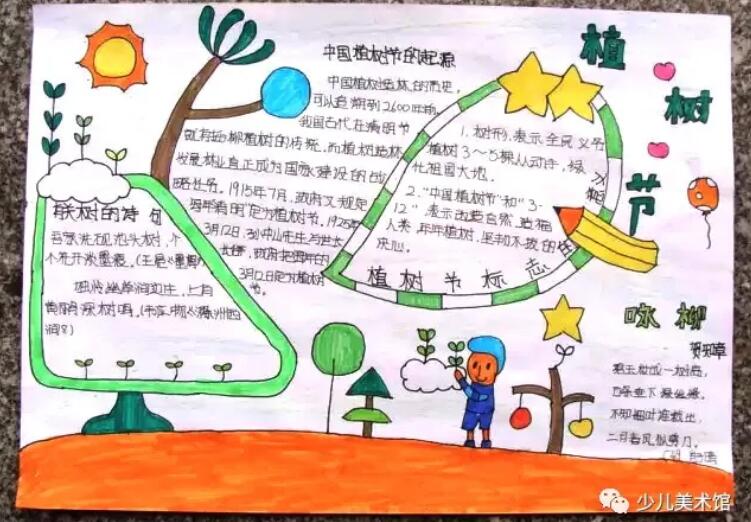 中国植树节的起源
中国植树造林的历史,
可以追溯到2600年前,
我国古代在清明节
就有插柳植树的传统。而植树造林
发展林业真正成为国家建设的
1915年7月,政府又规定
每年清明"定为植树节。1925年
3月12日,孙中山先生与世长
3月12日定为植树
节。
植
树
节
1.树形,表示全民义务
植树3~5棵人人动手,绿
化祖国大地。
2."中国植树节"和"3·
12"表示改造自然,造福
人类,年年植树,坚韧不拔的
决心。
植树节标志
树的诗句
吾家洗砚池头树,个
个花开淡墨痕。
独怜幽草涧边生,上有
黄鹂深树鸣。
咏柳
贺知章
碧玉妆成一树高,
万条垂下绿丝绦。
不知细叶谁裁出,
二月春风似剪刀。
少儿美术馆